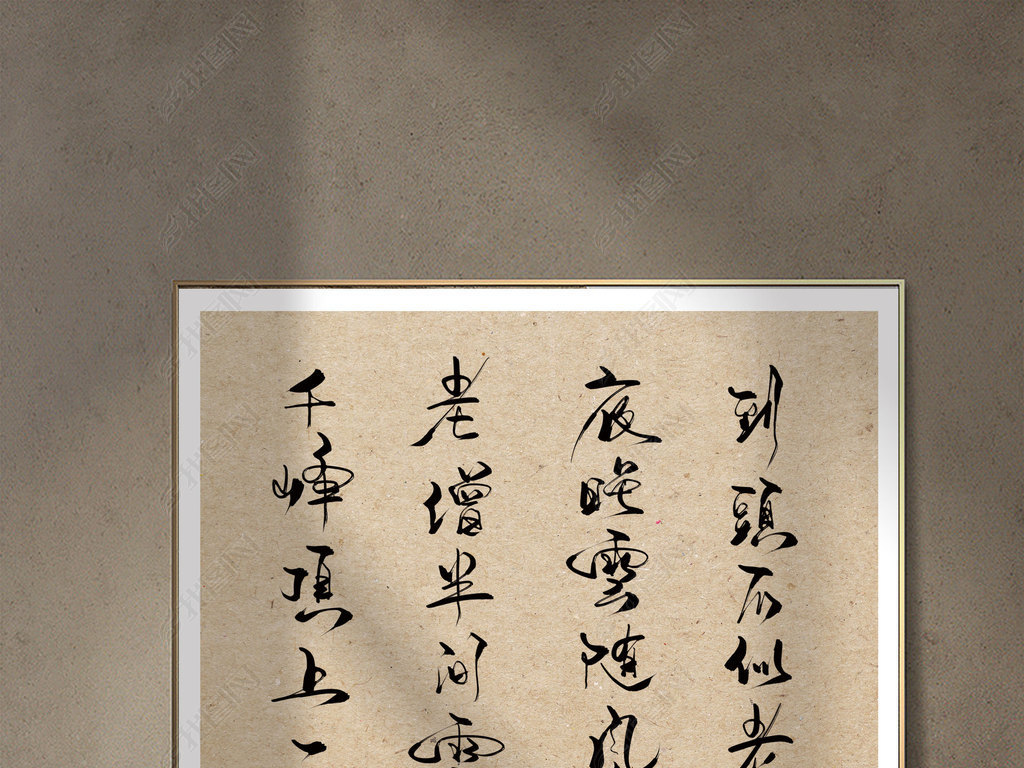 千峰頂上一
老僧半間雲
夜雲随風
到頭不似老